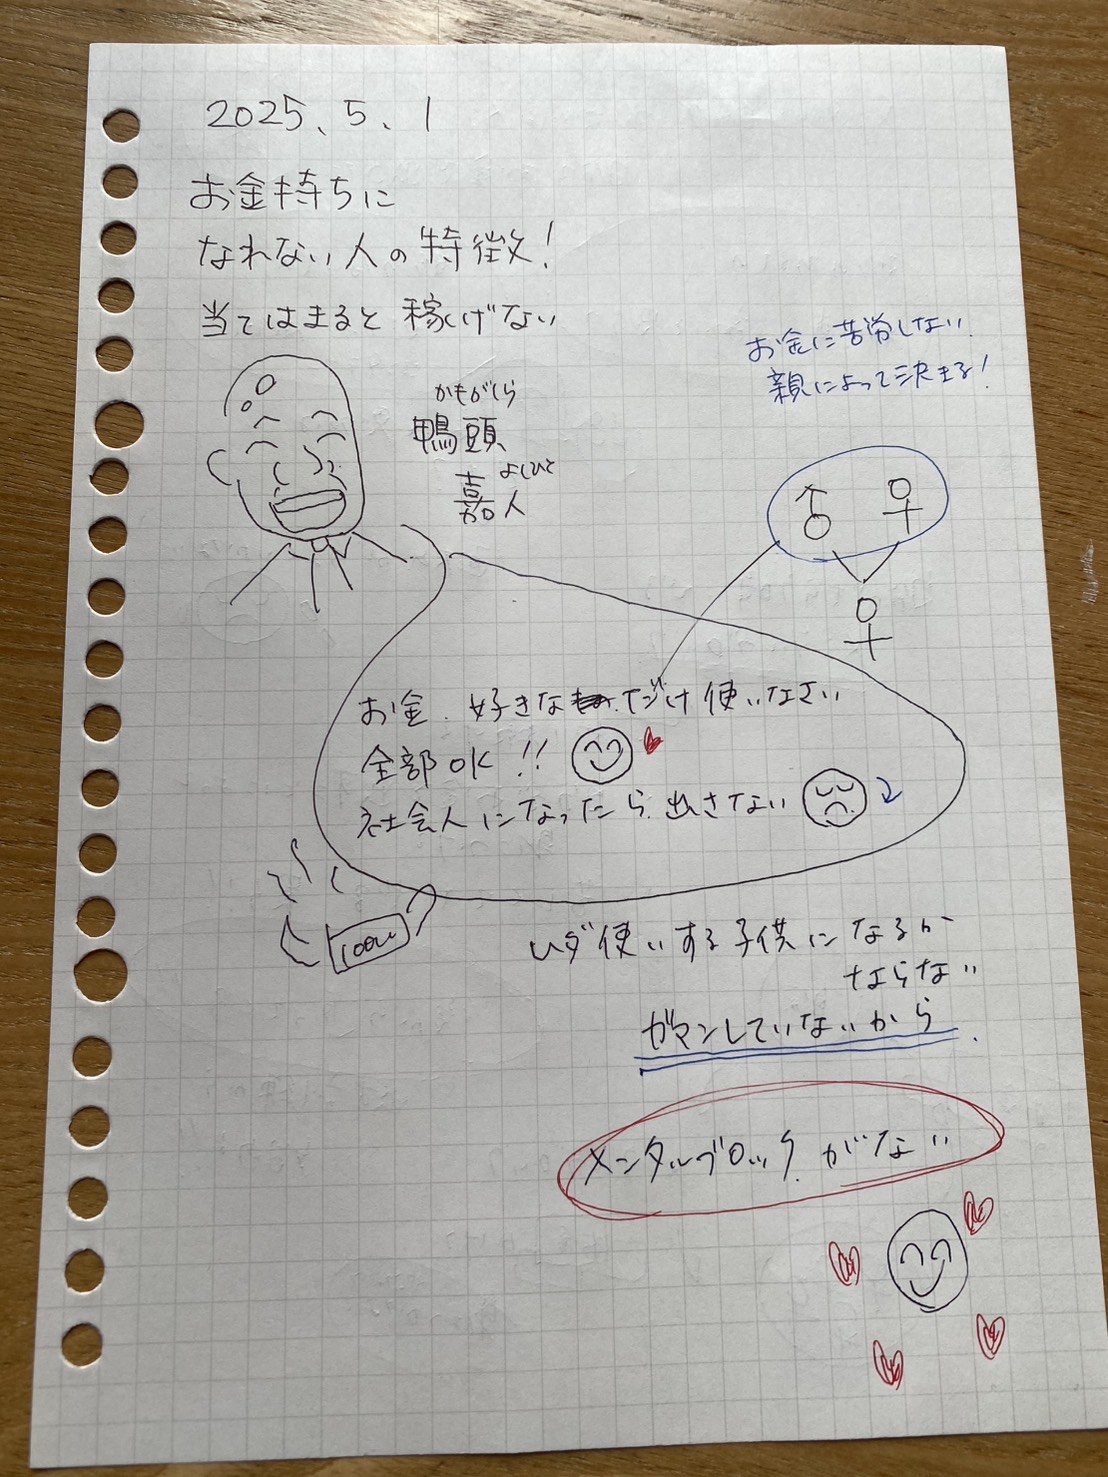 2025、5、1
お金持ちに
なれない人の特徴!
当てはまると稼げない
お金に苦労しない
親によって決まる!
かもがしら
鴨頭
よしひと
嘉人
お金、好きなだけ使いなさい
全部OK!!
社会人になったら、出さない
100
ムダ使いする子供になるか
ならない
ガマンしていないから
メンタルブロックがない